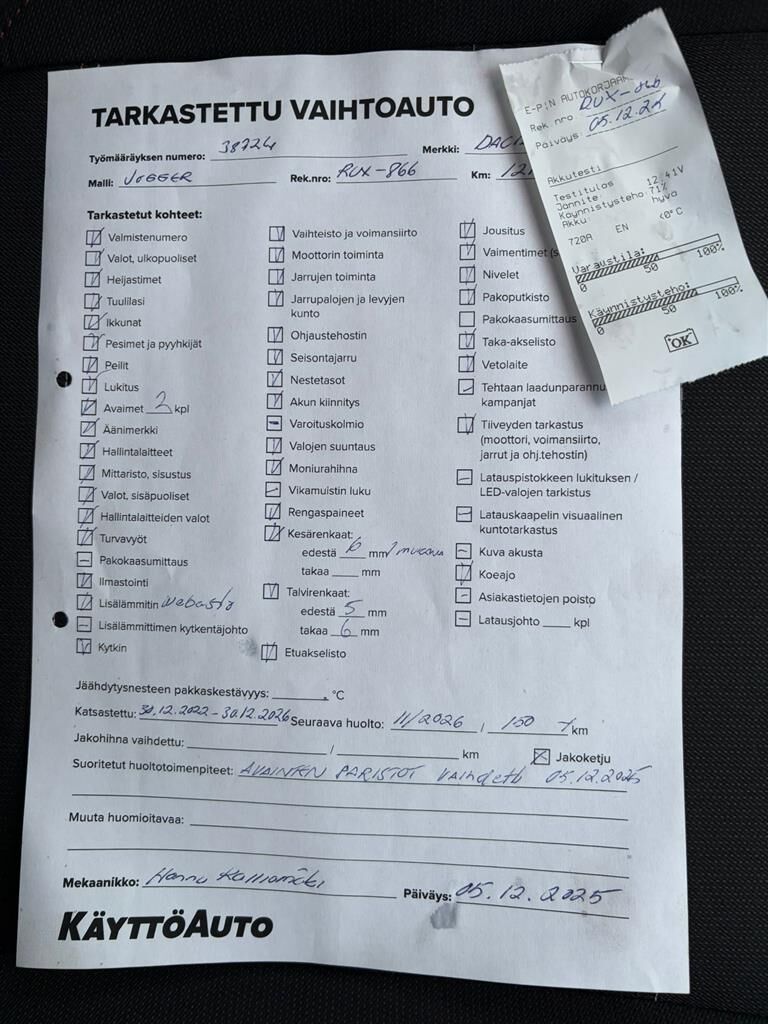 TARKASTETTU VAIHTOAUTO
Työmääräyksen numero: 38724 Merkki: DACI
Malli: JOGGER Rek.nro: RUX-866 Km: 121
Tarkastetut kohteet:
Valmistenumero
Valot, ulkopuoliset
Heijastimet
Tuulilasi
Ikkunat
Pesimet ja pyyhkijät
Peilit
Lukitus
Avaimet 2 kpl
Äänimerkki
Hallintalaitteet
Mittaristo, sisustus
Valot, sisäpuoliset
Hallintalaitteiden valot
Turvavyöt
Pakokaasumittaus
Ilmastointi
Lisälämmitin webasto
Lisälämmittimen kytkentäjohto
Kytkin
Vaihteisto ja voimansiirto
Moottorin toiminta
Jarrujen toiminta
Jarrupalojen ja levyjen
kunto
Ohjaustehostin
Seisontajarru
Nestetasot
Akun kiinnitys
Varoituskolmio
Valojen suuntaus
Moniurahihna
Vikamuistin luku
Rengaspaineet
Kesärenkaat:
edestä 6 mm
takaa mm
Talvirenkaat:
edestä 5 mm
takaa 6 mm
Etuakselisto
Jousitus
Vaimentimet (s
Nivelet
Pakoputkisto
Pakokaasumittaus
Taka-akselisto
Vetolaite
Tehtaan laadunparannu
kampanjat
Tiiveyden tarkastus
(moottori, voimansiirto,
jarrut ja ohj.tehostin)
Latauspistokkeen lukituksen /
LED-valojen tarkistus
Latauskaapelin visuaalinen
kuntotarkastus
Kuva akusta
Koeajo
Asiakastietojen poisto
Latausjohto kpl
Jäähdytysnesteen pakkaskestävyys: °C
Katsastettu: 30.12.2022-30.12.2026 Seuraava huolto: 11/2026 / 150 km
Jakohihna vaihdettu: / km Jakoketju
Suoritetut huoltotoimenpiteet: AVAINTEN PARISTOT vaihdettu 05.12.2025
Muuta huomioitavaa:
Mekaanikko: Hannu Kalliomäki Päiväys: 05.12.2025
KÄYTTÖAUTO
E-P:N AUTOKORJAAM
Rek.nro. RUX-866
Päiväys: 05.12.25
Akkutesti
Testitulos
Jännite: 12.41V
Käynnistysteho: 71%
Akku: hyvä
720A EN <0°C
Varaustila:
0 50 100%
Käynnistysteho:
0 50 100%
OK